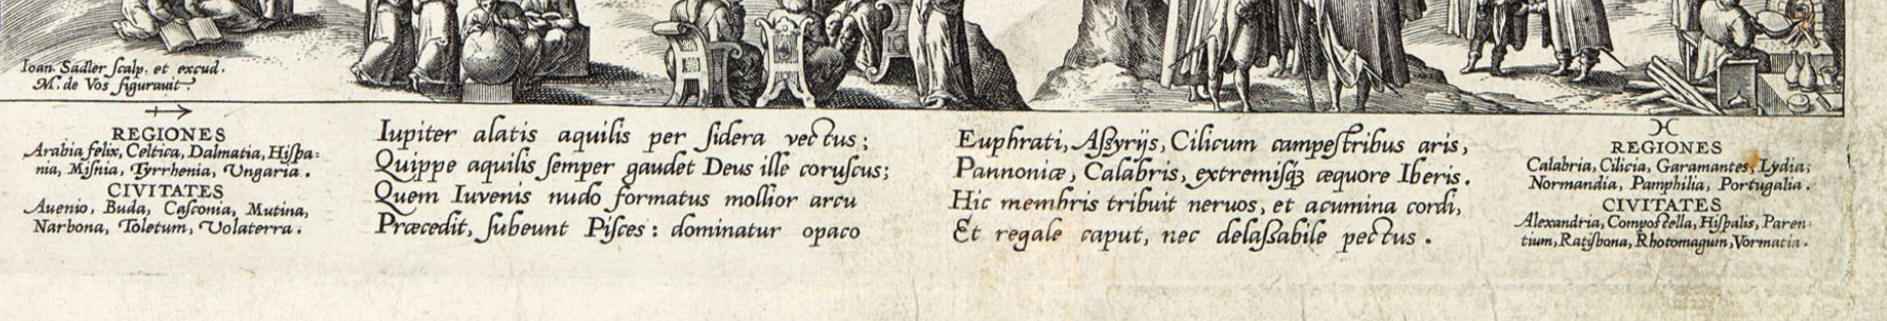 Ioan. Sadler ſcalp. et excud.
M. de Vos figurauit.
REGIONES
Arabia felix, Celtica, Dalmatia, Hiſpa-
nia, Miſnia, Tyrrhenia, Vngaria.
CIVITATES
Auenio, Buda, Caſconia, Mutina,
Narbona, Toletum, Volaterra.
Iupiter alatis aquilis per ſidera vectus;
Quippe aquilis ſemper gaudet Deus ille coruſcus;
Quem Iuvenis nudo formatus mollior arcu
Præcedit, ſubeunt Piſces: dominatur opaco
Euphrati, Aſſyrijs, Cilicum campeſtribus aris,
Pannoniæ, Calabris, extremiſq́ꝫ æquore Iberis.
Hic membris tribuit neruos, et acumina cordi,
Et regale caput, nec delaſſabile pectus.
♓
REGIONES
Calabria, Cilicia, Garamantes, Lydia,
Normandia, Pamphilia, Portugalia.
CIVITATES
Alexandria, Compoſtella, Hiſpalis, Paren-
tium, Ratiſbona, Rhotomagum, Vormatia.